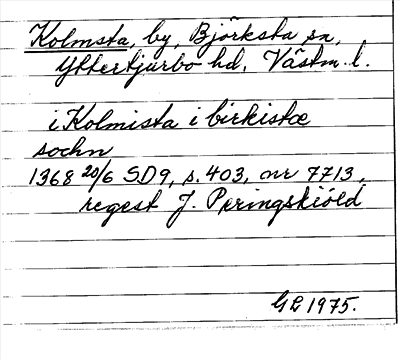 Kolmsta, by, Björksta sn,
Yttertjurbo hd, Västm. l.
i Kolmista i birkistæ
sochn
1368 20/6 SD9, s. 403, nr 7713,
regest J. Peringskiöld
GL 1975.